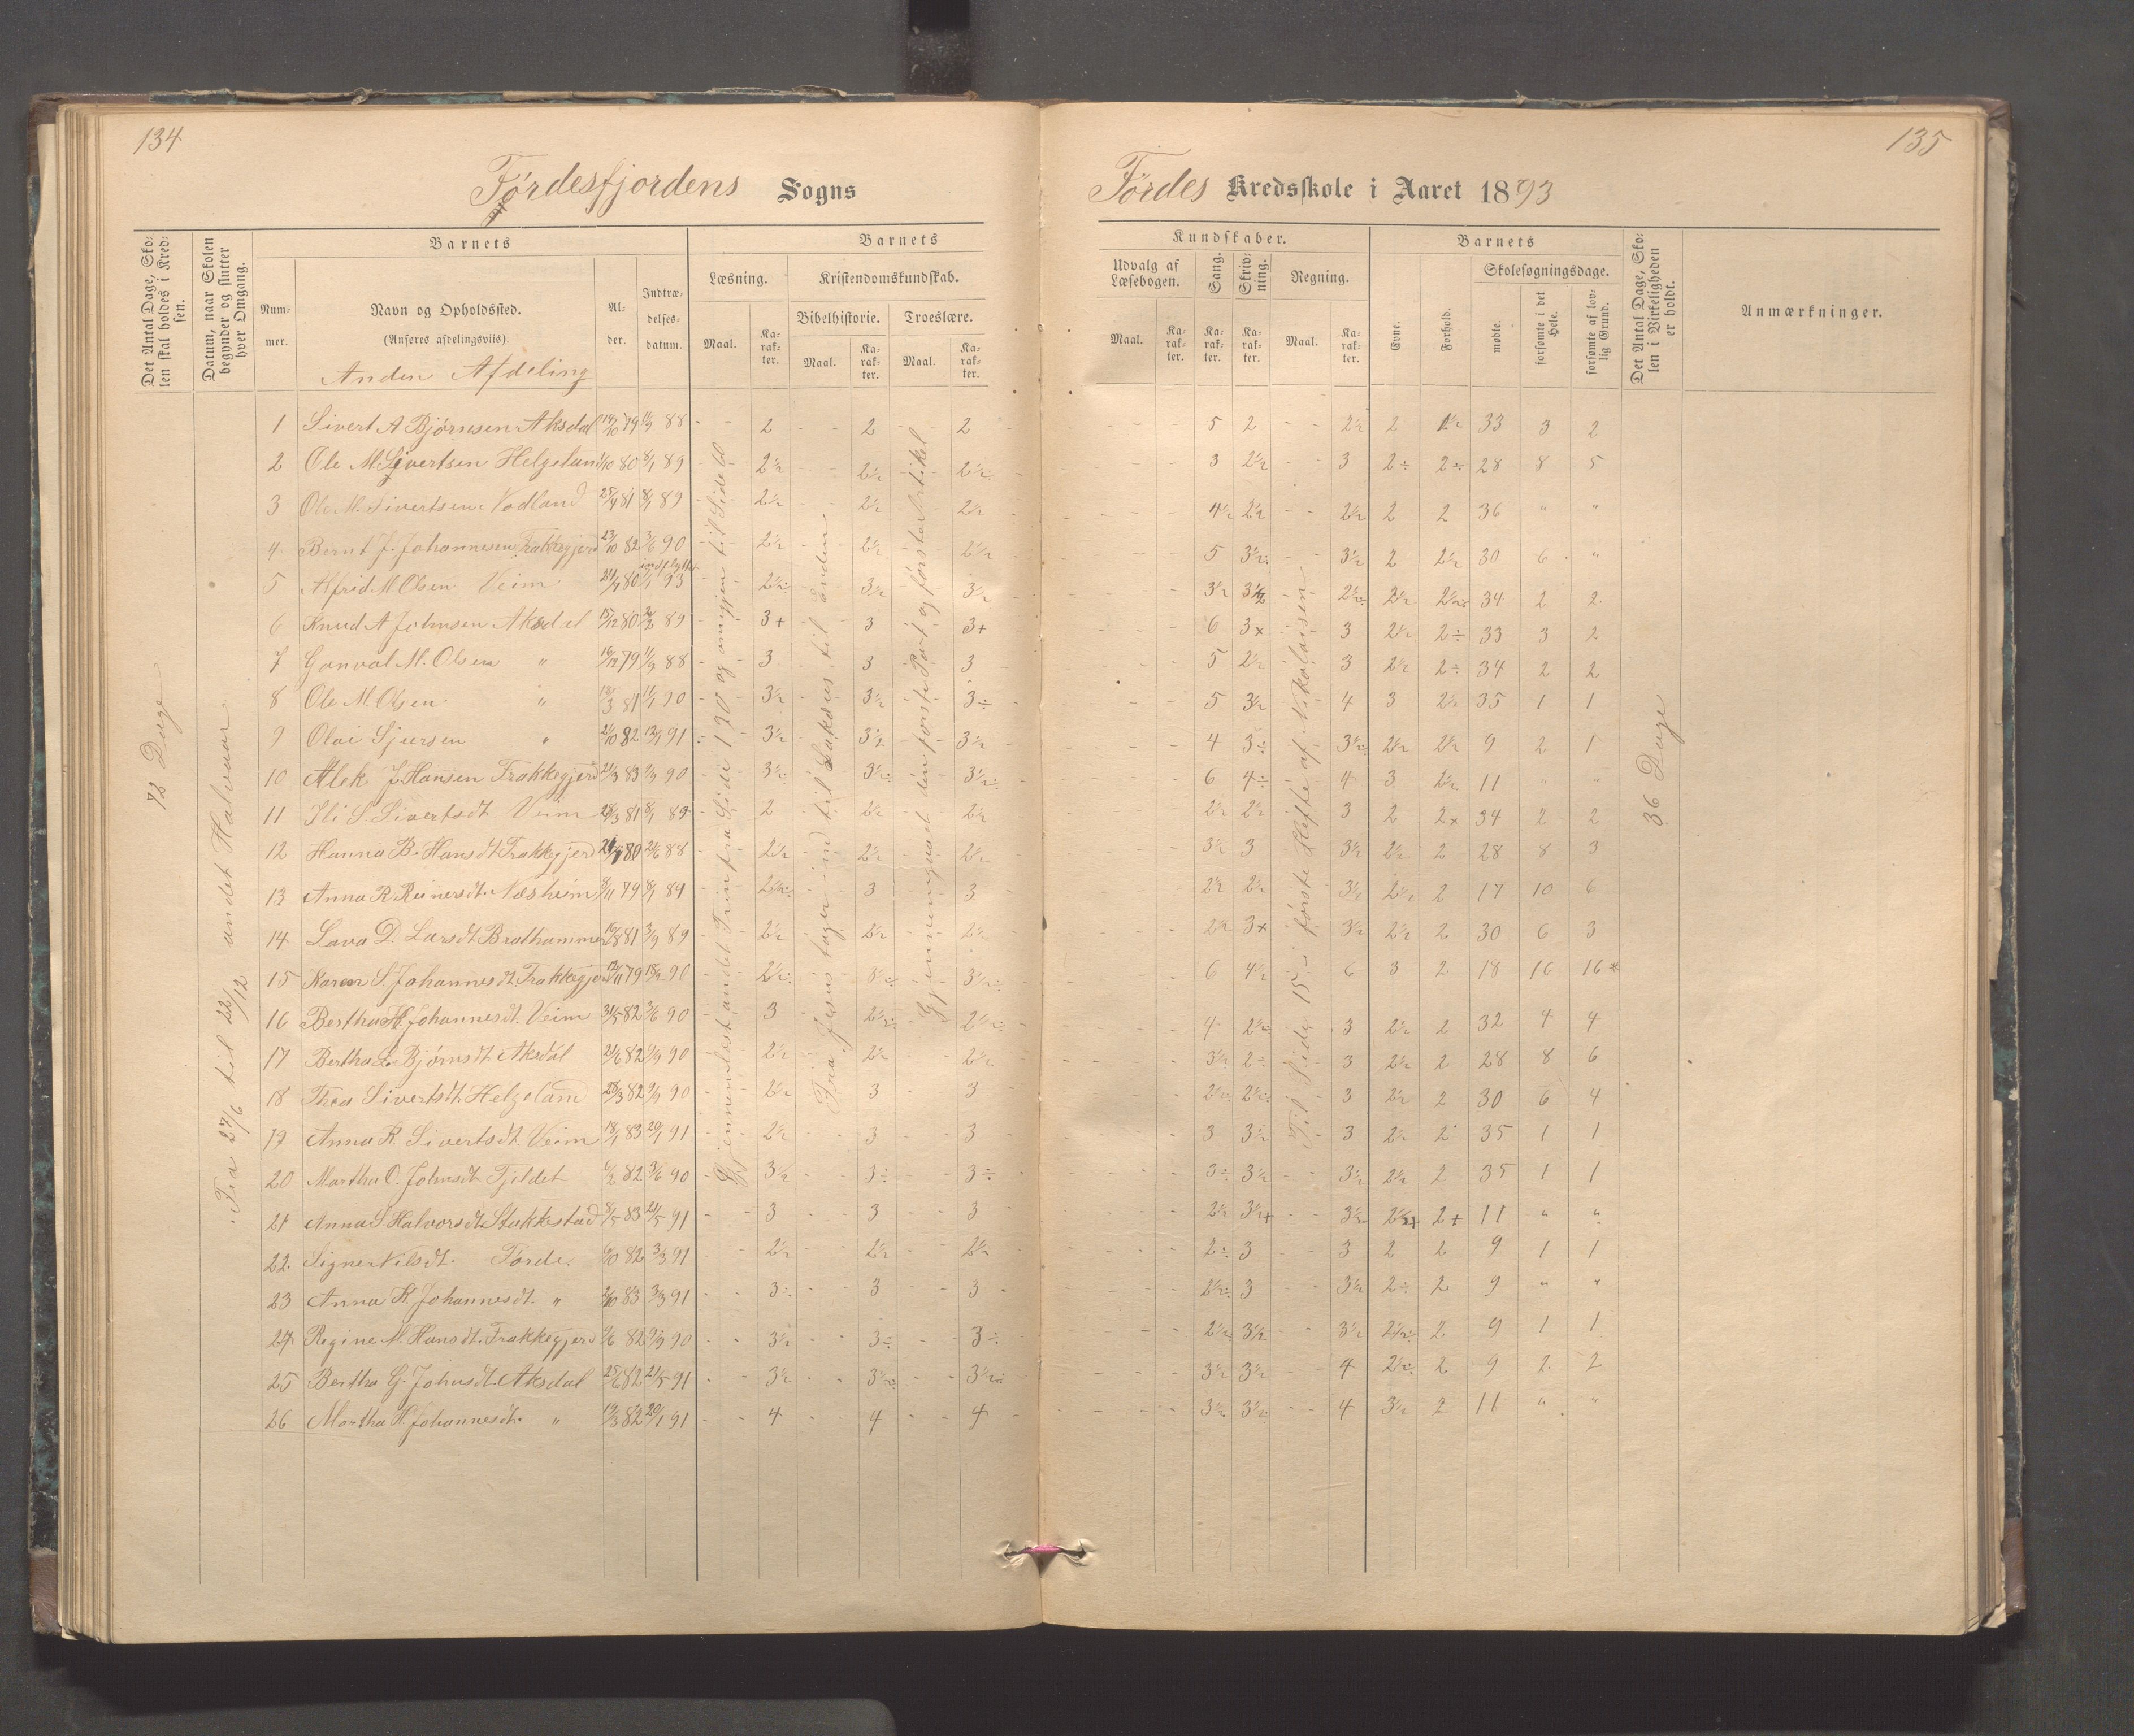 134
Førdesfjordens Sogns
Det Antal Dage, Sko-
len skal holdes i Kred-
sen.
Datum, naar Skolen
begynder og slutter
hver Omgang.
Barnets
Num-
mer.
Navn og Opholdssted.
(Anføres afdelingsviis).
Anden Afdeling
Al-
der.
Indtræ-
delses-
datum.
Barnets
Læsning.
Maal.
Ka-
rak-
ter.
Kristendomskundskab.
Bibelhistorie.
Maal.
Ka-
rak-
ter.
Troeslære.
Maal.
Ka-
rak-
ter.
72 Dage
Fra 27/6 til 22/12 andet Halvaar
Gjennemlæst andet Trin fra Side 120 og omigjen til Side
Fra Jesus tager ind til Zakæus til Enden
Gjennemgaaet den første Part og første Artikel
1 Sivert A Bjørnsen Aksdal 14/10 79 11/9 88 2 2 2
2 Ole M. Sivertsen Helgeland 80 8/1 89 2½ 2½ 2½
3 Ole M. Sivertsen Vodland 25/4 81 8/1 89 2½ 2½ 2½
4 Bernt J. Johannesen Frakkegjerd 23/10 82 3/6 90 2½ 2½ 2½
5 Alfrid M. Olsen Veim 24/4 80 93 2½ 3½ 3½
6 Knud A Johnsen Aksdal 15/12 80 89 3+ 3 3+
7 Gonval M. Olsen " 16/12 79 11/9 88 3 3 3
8 Ole M Olsen " 81 90 3½ 3½ 3÷
9 Olai Sjursen " 2/10 82 91 3½ 3½ 3½
10 Alek J. Hansen Frakkegjerd 21/3 83 9/9 90 3½ 3½÷ 3½÷
11 Ili S. Sivertsdt. Veim 28/3 81 8/1 89 2 2½ 2½
12 Hanna B. Hansdt Frakkegjerd 80 2/6 88 2½ 2½ 2½
13 Anna R Reinersdt. Næsheim 8/11 79 8/1 89 2½÷ 3 3
14 Lava D. Larsdt Brathammer 16/8 81 3/9 89 2½ 2½ 2½
15 Karen S. Johannesdt. Frakkegjerd 79 90 2½÷ 3½÷
16 Bertha H. Johannesdt. Veim 82 3/6 90 3 2½÷ 2½÷
17 Bertha L. Bjørnsdt. Aksdal 21/6 82 9/9 90 2½ 2½ 2½
18 Thea Sivertsdt. Helgeland 28/3 82 9/9 90 2½ 3 3
19 Anna R. Sivertsdt. Veim 18/1 83 20/1 91 2½ 3 3
20 Martha O. Johnsdt. Fjildet 6/2 82 3/6 90 3½ 3÷ 3÷
21 Anna S. Halvorsdt. Stakkestad 8/5 83 21/5 91 3 3 3
22. Signe Nilsdt. Førde. 82 3/3 91 2½ 2½ 2½
23 Anna K. Johannesdt. " 2/10 83 3/3 91 3÷ 3 3
24 Regine M. Hansdt. Frakkegjerd 82 9/9 90 3½ 3÷ 3÷
25 Bertha G. Johnsdt. Aksdal 25/6 82 21/5 91 3½ 3½÷ 3½÷
26 Martha H. Johannesdt. " 19/3 82 20/1 91 4 4 4
135
Førdes Kredsskole i Aaret 1893
Kundskaber.
Udvalg af
Læsebogen.
Maal.
Ka-
rak-
ter.
Sang.
Ka-
rak-
ter.
Skriv-
ning.
Ka-
rak-
ter.
Regning.
Maal.
Ka-
rak-
ter.
Barnets
Evne.
Forhold.
Skolesøgningsdage.
mødte.
forsømte i det
Hele.
forsømte af lov-
lig Grund.
Det Antal Dage, Sko-
len i Virkeligheden
er holdt.
Anmærkninger.
Til Side 15 i første Hefte af Nikolaisen
36 Dage
5 2 2½ 2 1½ 33 3 2
3 2½ 3 2÷ 2÷ 28 8 5
4½ 2½ 2½ 2 2 36 " "
5 3½ 3½ 2 2½ 30 6 "
3½ 3½ 2½÷ 2½ 2½ 34 2 2
6 3× 3 2½ 2÷ 33 3 2
5 2½ 3 2½ 2÷ 34 2 2
5 3½ 4 3 2½ 35 1 1
4 3÷ 3½÷ 2½ 2½ 9 2 1
6 4÷ 4 3 2½ 11 " "
2½ 2½ 3 2 2× 34 2 2
3½ 3 3½ 2½ 2 28 8 3
2½ 2½ 3½ 2½ 2 17 10 6
2½ 3× 3½ 2½ 2 30 6 3
6 4½ 6 3 2 18 16 16*
4 2½ 3 2½ 2 32 4 4
3½ 2÷ 3 2½ 2 28 8 6
2½÷ 2½÷ 3 2½ 2 30 6 4
3 3½ 3 2½ 2 35 1 1
3÷ 3½ 3½ 2½ 2 35 1 1
2½ 3½+ 3½ 2½+ 2+ 11 " "
2÷ 3 3 2 2 9 1 1
2½÷ 3 3½ 2÷ 2 9 " "
2½÷ 3½ 3½ 2½÷ 2 9 1 1
3½ 3½ 4 2½÷ 2 9 2 2
3½ 3½ 4 3½ 2 11 " "